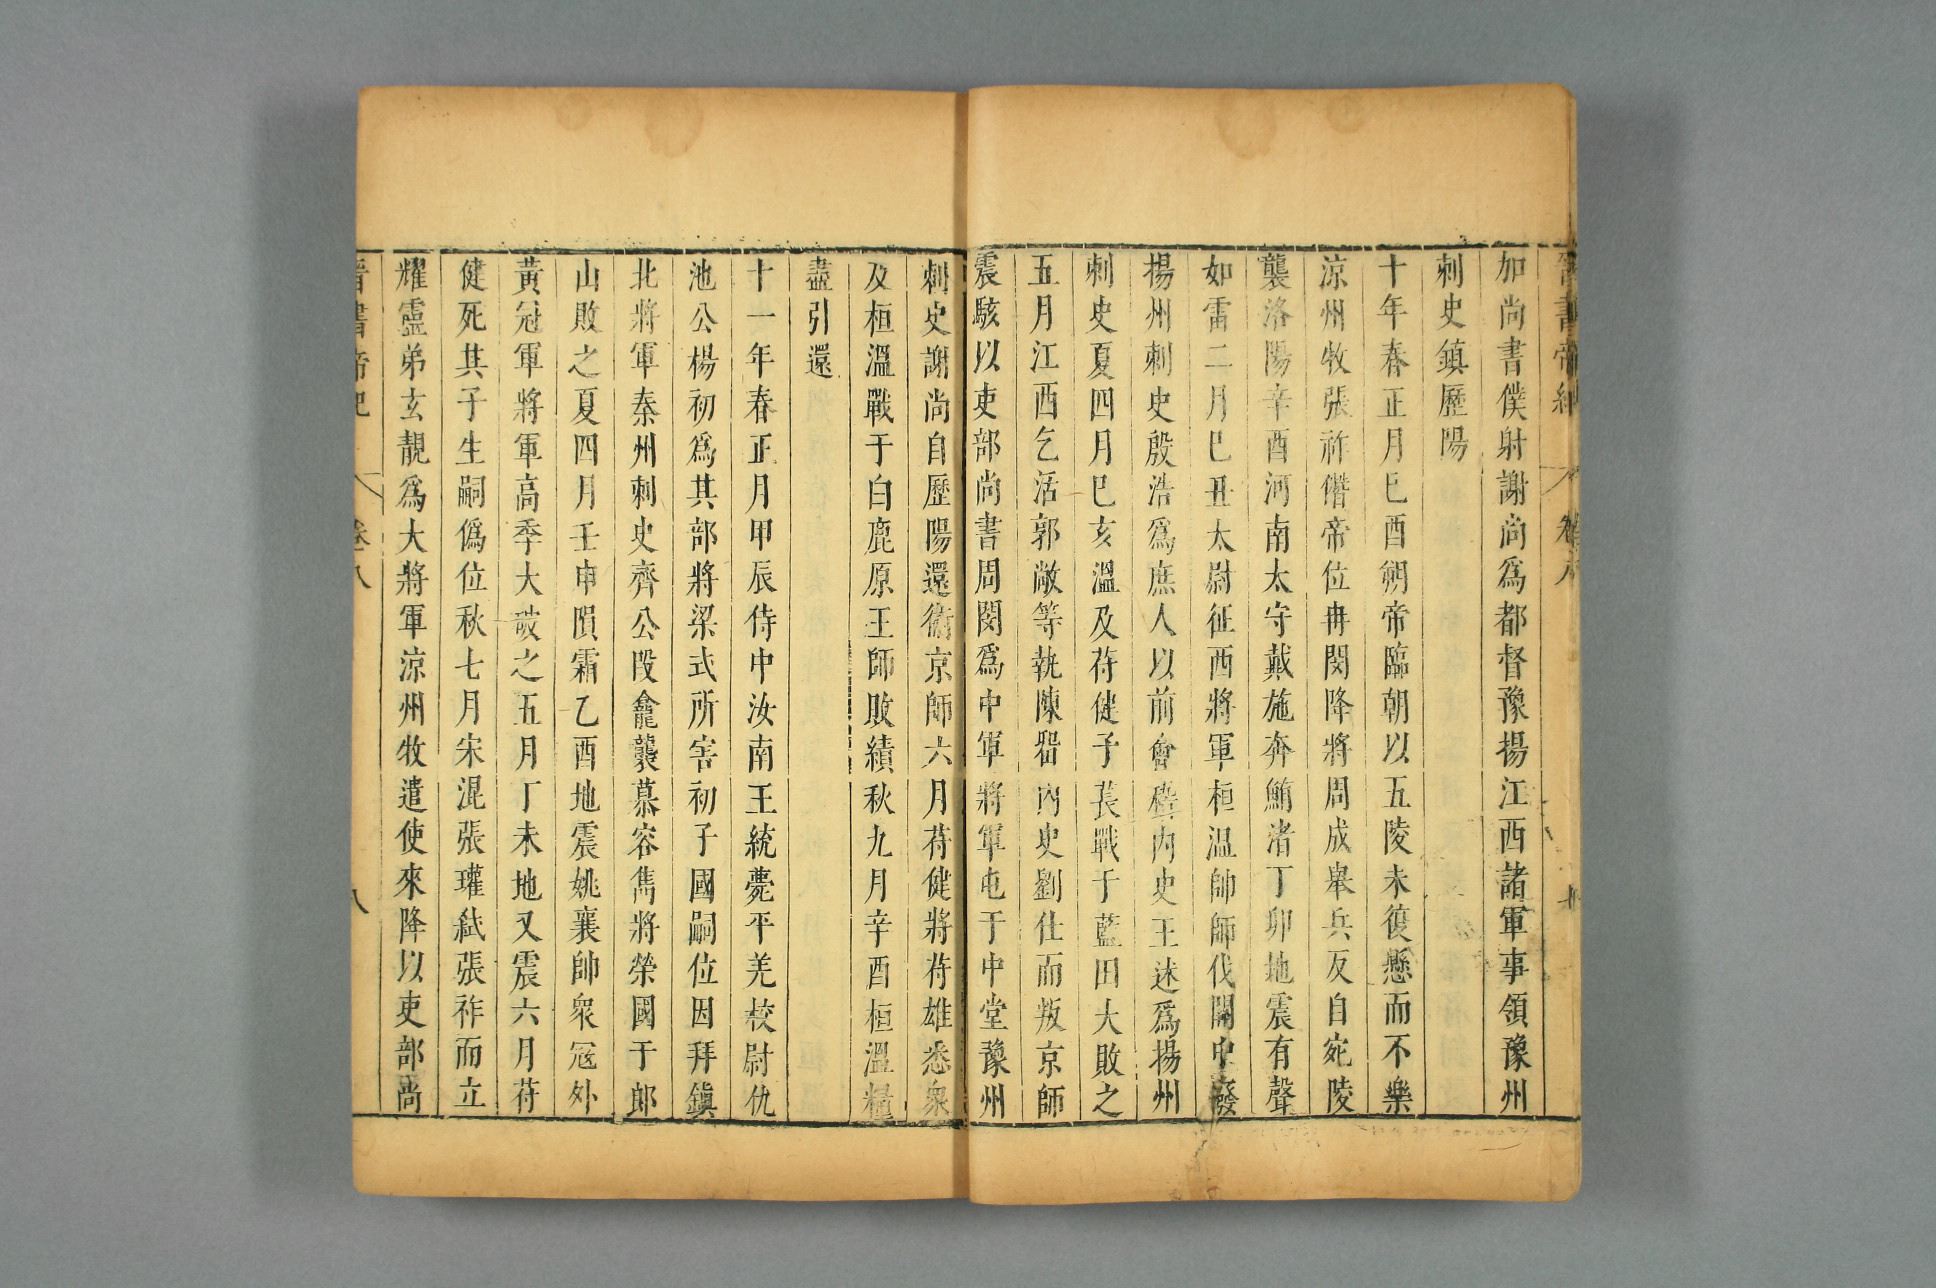 晉書帝紀 卷八
加尚書僕射謝尚爲都督豫揚江西諸軍事領豫州
刺史鎮歷陽
十年春正月巳酉朔帝臨朝以五陵未復懸而不樂
涼州牧張祚僭帝位冉閔降將周成舉兵反自宛陵
襲洛陽辛酉河南太守戴施奔鮪渚丁卯地震有聲
如雷二月巳丑太尉征西將軍桓溫帥師伐關中廢
揚州刺史殷浩爲庶人以前會稽内史王述爲揚州
刺史夏四月巳亥溫及苻健子萇戰于藍田大敗之
五月江西乞活郭敞等執陳留内史劉仕而叛京師
震駭以吏部尚書周閔爲中軍將軍屯于中堂豫州
刺史謝尚自歷陽還衞京師六月苻健將苻雄悉衆
及桓溫戰于白鹿原王師敗績秋九月辛酉桓溫糧
盡引還
十一年春正月甲辰侍中汝南王統薨平羌校尉仇
池公楊初爲其部將梁式所害初子國嗣位因拜鎮
北將軍秦州刺史齊公段龕襲慕容雋將榮國于郎
山敗之夏四月壬申隕霜乙酉地震姚襄帥衆寇外
黃冠軍將軍高季大破之五月丁未地又震六月苻
健死其子生嗣僞位秋七月宋混張瓘弑張祚而立
耀靈弟玄靚爲大將軍涼州牧遣使來降以吏部尚
晉書帝紀 卷八 八